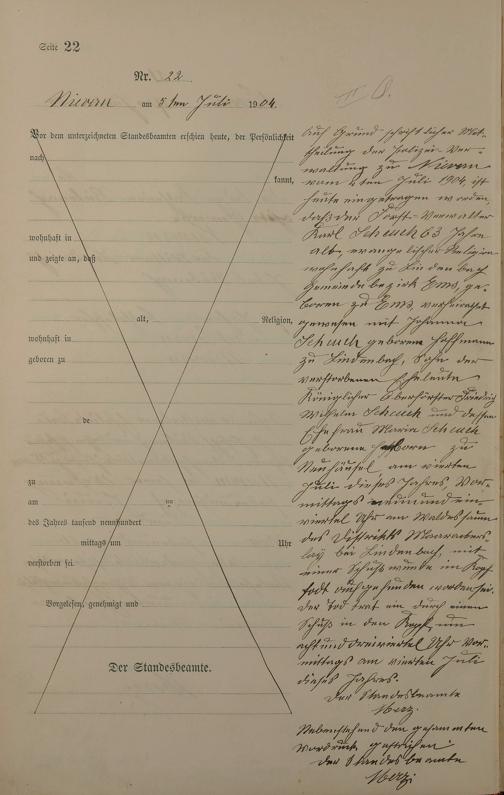 Seite 22
Nr. 22
Nievern am 5ten Juli 1904.
Vor dem unterzeichneten Standesbeamten erschien heute, der Persönlichkeit
nach
kannt,
wohnhaft in
und zeigte an, daß
alt, Religion,
wohnhaft in
geboren zu
de
zu
am
des Jahres tausend neunhundert
mittags um Uhr
verstorben sei.
Vorgelesen, genehmigt und
Der Standesbeamte.
Auf Grund schriftlicher Mit-
theilung der Polizei-Ver-
waltung zu Nievern
vom 4ten Juli 1904, ist
heute eingetragen worden,
daß der Forst-Verwalter
Karl Scheuch 63 Jahre
alt, evangelischer Religion
wohnhaft zu Lindenbach
Gemeindebezirk Ems, ge-
boren zu Ems, verheirathet
gewesen mit Johanna
Scheuch geborene Hoffmann
zu Lindenbach, Sohn der
verstorbenen Eheleute
Königlicher Oberförster Friedrich
Wilhelm Scheuch und dessen
Ehefrau Marie Scheuch
geborene zu
Neuhäusel am vierten
Juli dieses Jahres Vor-
mittags neunundein-
viertel Uhr am Waldessaum
des Distrikts
bei Lindenbach, mit
einer Schußwunde im Kopf
todt aufgefunden worden sei.
Der Tod trat ein durch einen
Schuß in den Kopf, um
achtunddreiviertel Uhr Vor-
mittags am vierten Juli
dieses Jahres.
Der Standesbeamte
Merz.
Nebenstehend den gesammten
Vordruck gestrichen
Der Standesbeamte
Merz.